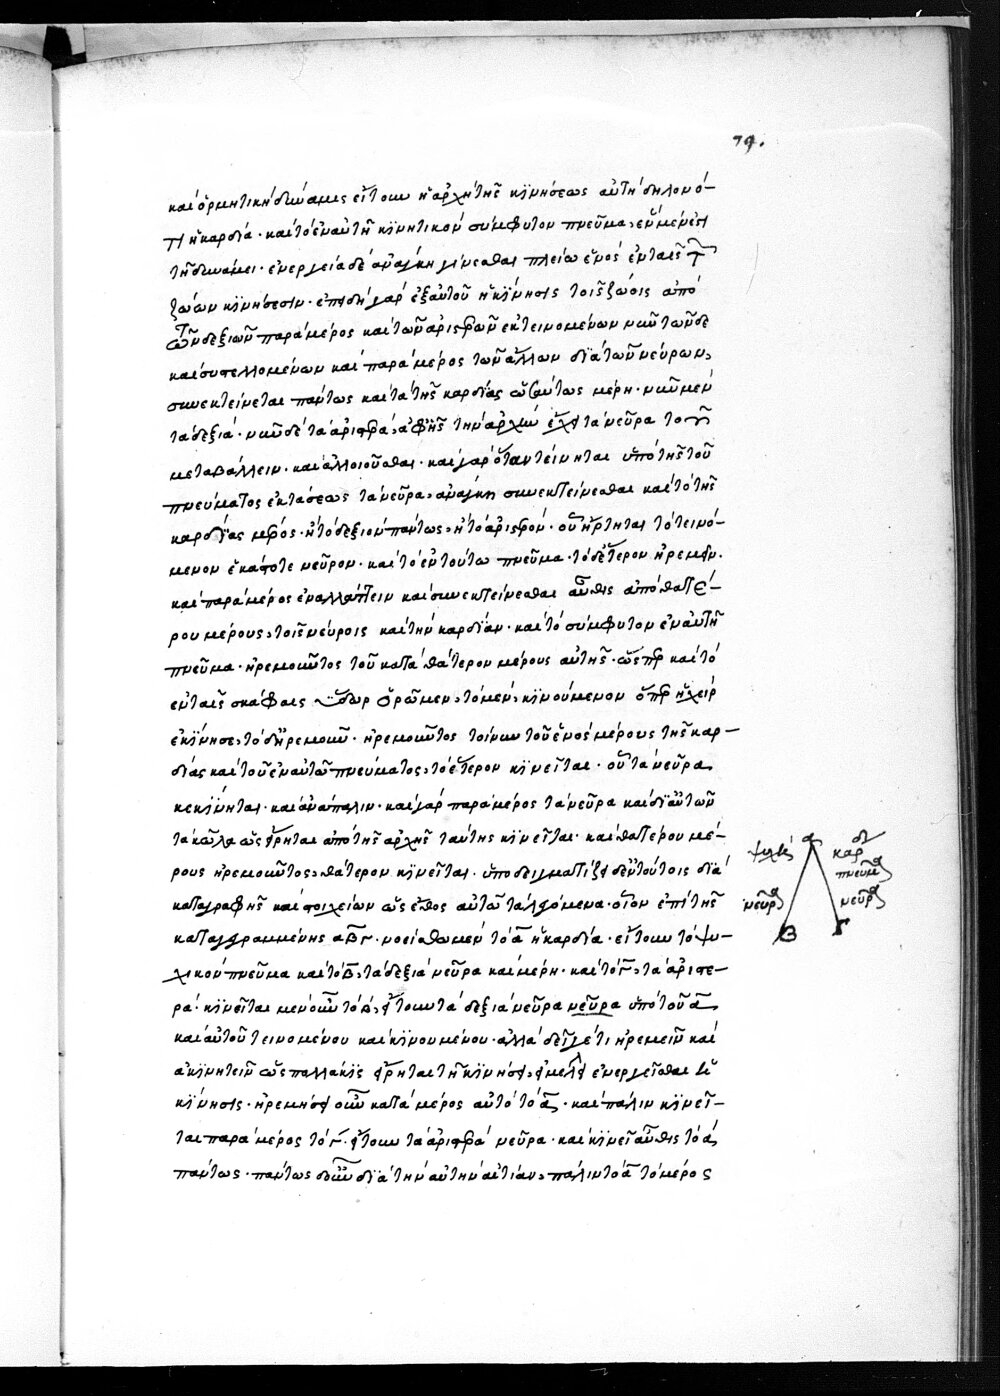 79.
καὶ ὁρμητικὴ δύναμις εἴτουν ἡ ἀρχὴ τῆς κινήσεως αὐτὴ δηλονό-
τι ἡ καρδία · καὶ τὸ ἐν αὐτῇ κινητικὸν σύμφυτον πνεῦμα, ἓν μέν ἐστι
τῇ δυνάμει · ἐνεργείᾳ δὲ ἀνάγκη γίνεσθαι πλείω ἑνός ἐν ταῖς τῶν
ζώων κινήσεσιν · ἐπειδὴ γὰρ ἐξ αὐτοῦ ἡ κίνησις τοῖς ζώοις ἀπὸ
τῶν δεξιῶν παρὰ μέρος καὶ τῶν ἀριστερῶν ἐκτεινομένων νῦν τῶνδε
καὶ συστελλομένων καὶ παρὰ μέρος τῶν ἄλλων διὰ τῶν νεύρων,
συνεκτείνεται πάντως καὶ τὰ τῆς καρδίας ὡσαύτως μέρη · νῦν μὲν
τὰ δεξιά · νῦν δὲ τὰ ἀριστερά, ἀφ' ἧς τὴν ἀρχὴν ἔχει τὰ νεῦρα τοῦ
μεταβάλλειν · καὶ ἀλλοιοῦσθαι · καὶ γὰρ ὅταν τείνηται ὑπὸ τῆς τοῦ
πνεύματος ἐκτάσεως τὰ νεῦρα, ἀνάγκη συνεκτείνεσθαι καὶ τὸ τῆς
καρδίας μέρος · ἢ τὸ δεξιὸν πάντως, ἢ τὸ ἀριστερόν · οὗ ἤρτηται τὸ τεινό-
μενον ἑκάστοτε νεῦρον · καὶ τὸ ἐν τούτω πνεῦμα · τὸ δ' ἕτερον ἠρεμεῖν ·
καὶ παρὰ μέρος ἐναλλάττειν καὶ συνεκτείνεσθαι αὖθις ἀπὸ θατέ-
ρου μέρους, τοῖς νεύροις καὶ τὴν καρδίαν · καὶ τὸ σύμφυτον ἐν αὐτῇ
πνεῦμα · ἠρεμοῦντος τοῦ κατὰ θάτερον μέρους αὐτῆς · ὥσπερ καὶ τὸ
ἐν ταῖς σκάφαις ὕδωρ ὁρῶμεν, τὸ μὲν, κινούμενον ὅπερ ἡ χεὶρ
ἐκίνησε, τὸ δ' ἠρεμοῦν · ἠρεμοῦντος τοίνυν τοῦ ἑνὸς μέρους τῆς καρ-
δίας καὶ τοῦ ἐν αὐτῶ πνεύματος, τὸ ἕτερον κινεῖται · οὗ τὰ νεῦρα
κεκίνηται · καὶ ἀνάπαλιν · καὶ γὰρ παρὰ μέρος τὰ νεῦρα καὶ δι' αὐτῶν
τὰ κῶλα ὡς εἴρηται ἀπὸ τῆς ἀρχῆς ταύτης κινεῖται · καὶ θατέρου μέ-
ρους ἠρεμοῦντος, θάτερον κινεῖται · ὑποδειγματίζει δ' ἐν τούτοις διὰ
καταγραφῆς καὶ στοιχείων ὡς ἔθος αὐτῶ τὰ λεγόμενα · οἷον ἐπὶ τῆς
καταγεγραμμένης αβγ · νοείσθω μὲν τὸ α ἡ καρδία · εἴτουν τὸ ψυ-
χικὸν πνεῦμα καὶ τὸ β, τὰ δεξιὰ νεῦρα καὶ μέρη · καὶ τὸ γ, τὰ ἀριστε-
ρά · κινεῖται μὲν οὖν τὸ β, εἴτουν τὰ δεξιὰ νεῦρα νεῦρα ὑπὸ τοῦ α
καὶ αὐτοῦ τεινομένου καὶ κινουμένου · ἀλλὰ δεῖ γέ τι ἠρεμεῖν καὶ
ἀκινητεῖν ὡς πολλάκις εἴρηται τῇ κινήσει, εἰ μέλλει ἐνεργεῖσθαι ἡ
κίνησις · ἠρεμήσει οὖν κατὰ μέρος αὐτὸ τὸ α · καὶ πάλιν κινεῖ-
ται παρὰ μέρος τὸ γ · εἴτουν τὰ ἀριστερὰ νεῦρα · καὶ κινεῖ αὖθις τὸ α
πάντως · πάντως δ' οὖν διὰ τὴν αὐτὴν αἰτίαν, πάλιν τὸ α τὸ μέρος
α
καρδί
πνεῦμα
νεῦρα
νεῦρα
Β
Γ